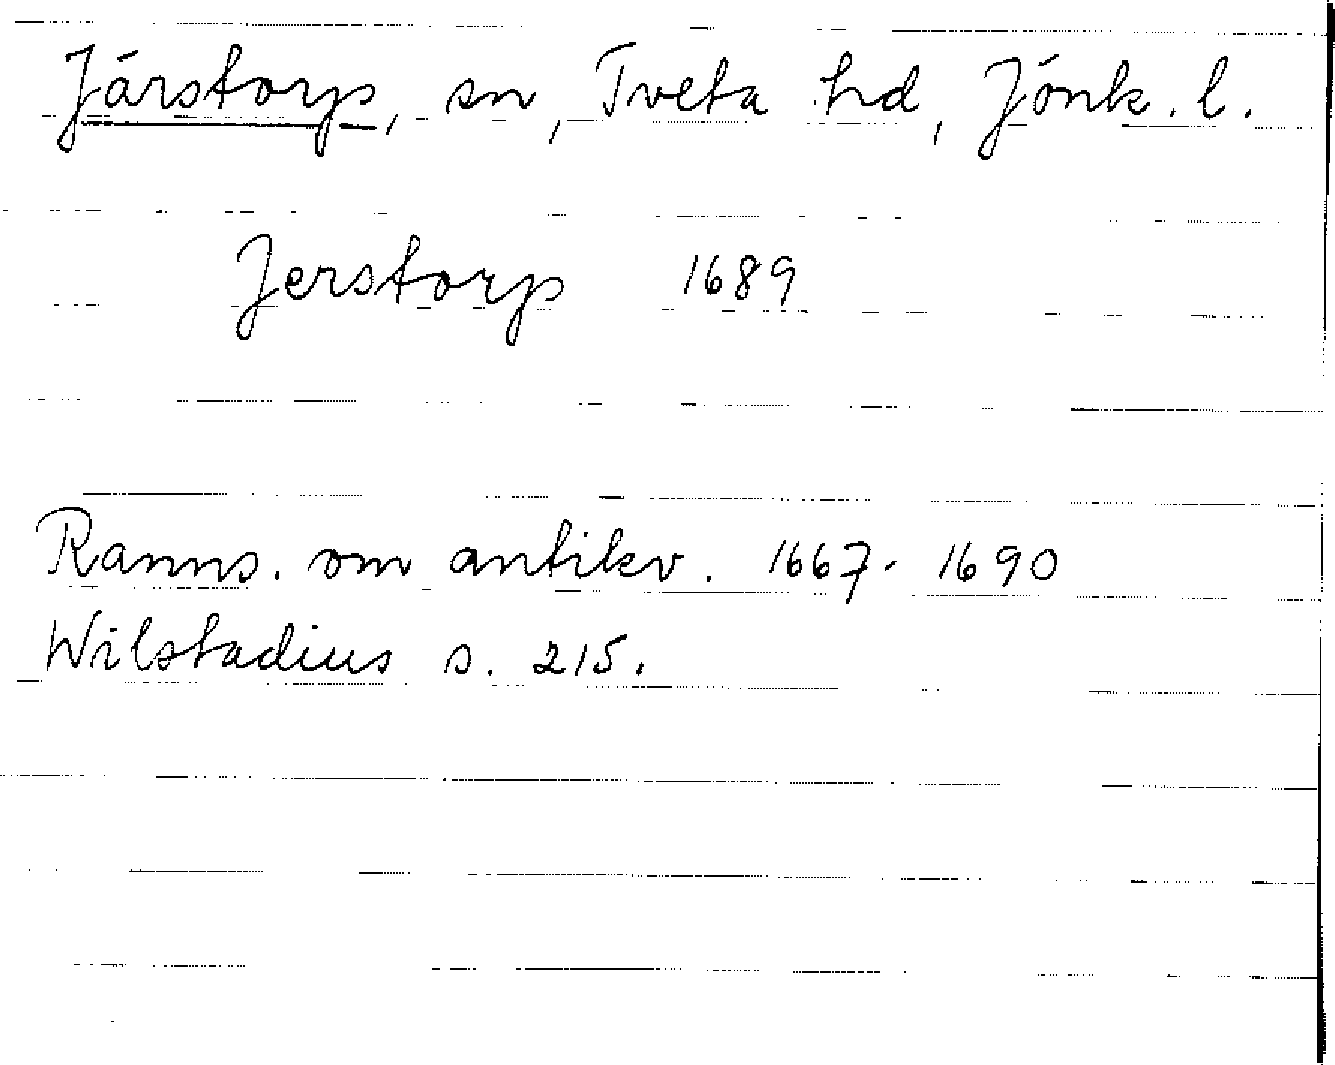 Järstorp, sn, Tveta hd, Jönk. l.
Jerstorp 1689
Ranns. om antikv. 1667-1690
Wilstadius s. 215.